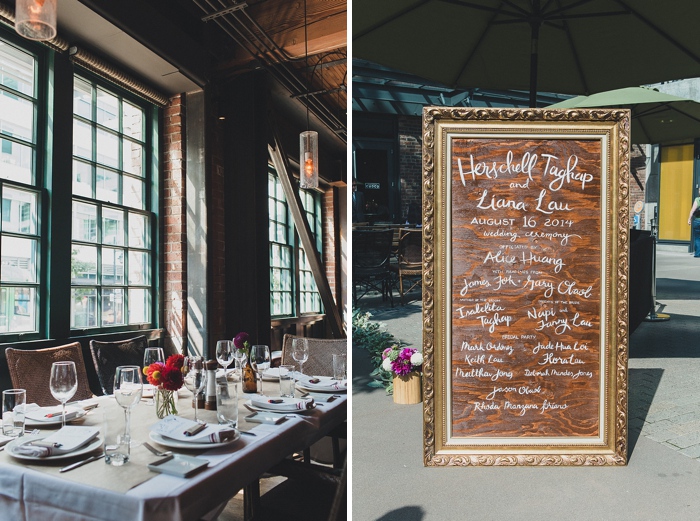 Herschell Taghap
and
Liana Lau
AUGUST 16 2014
wedding ceremony
OFFICIATED BY
Alice Huang
James Fok Gary Obaob
Inalelita Taghap
Napi and Fanny Lau
BRIDAL PARTY
Mark Ordony Jade Hua Loi
Keith Lau Flora Lau
Matthew Fong Deborah Mendez Jones
Jason Obaob
Rhodu Manzana